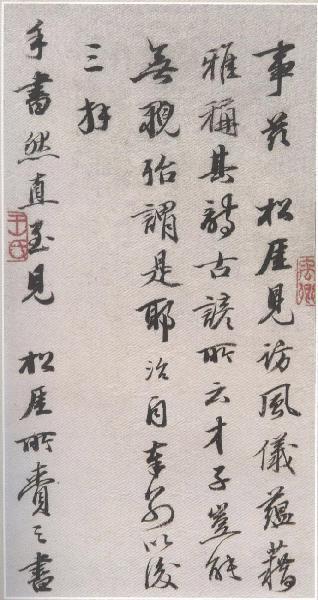 事苏 松厓見訪風儀蘊藉
雅稱其詩古諺所云才子豈能
無貌殆謂是耶 治自奉別以後
三拜
手書然直至見 松厓所賚之書